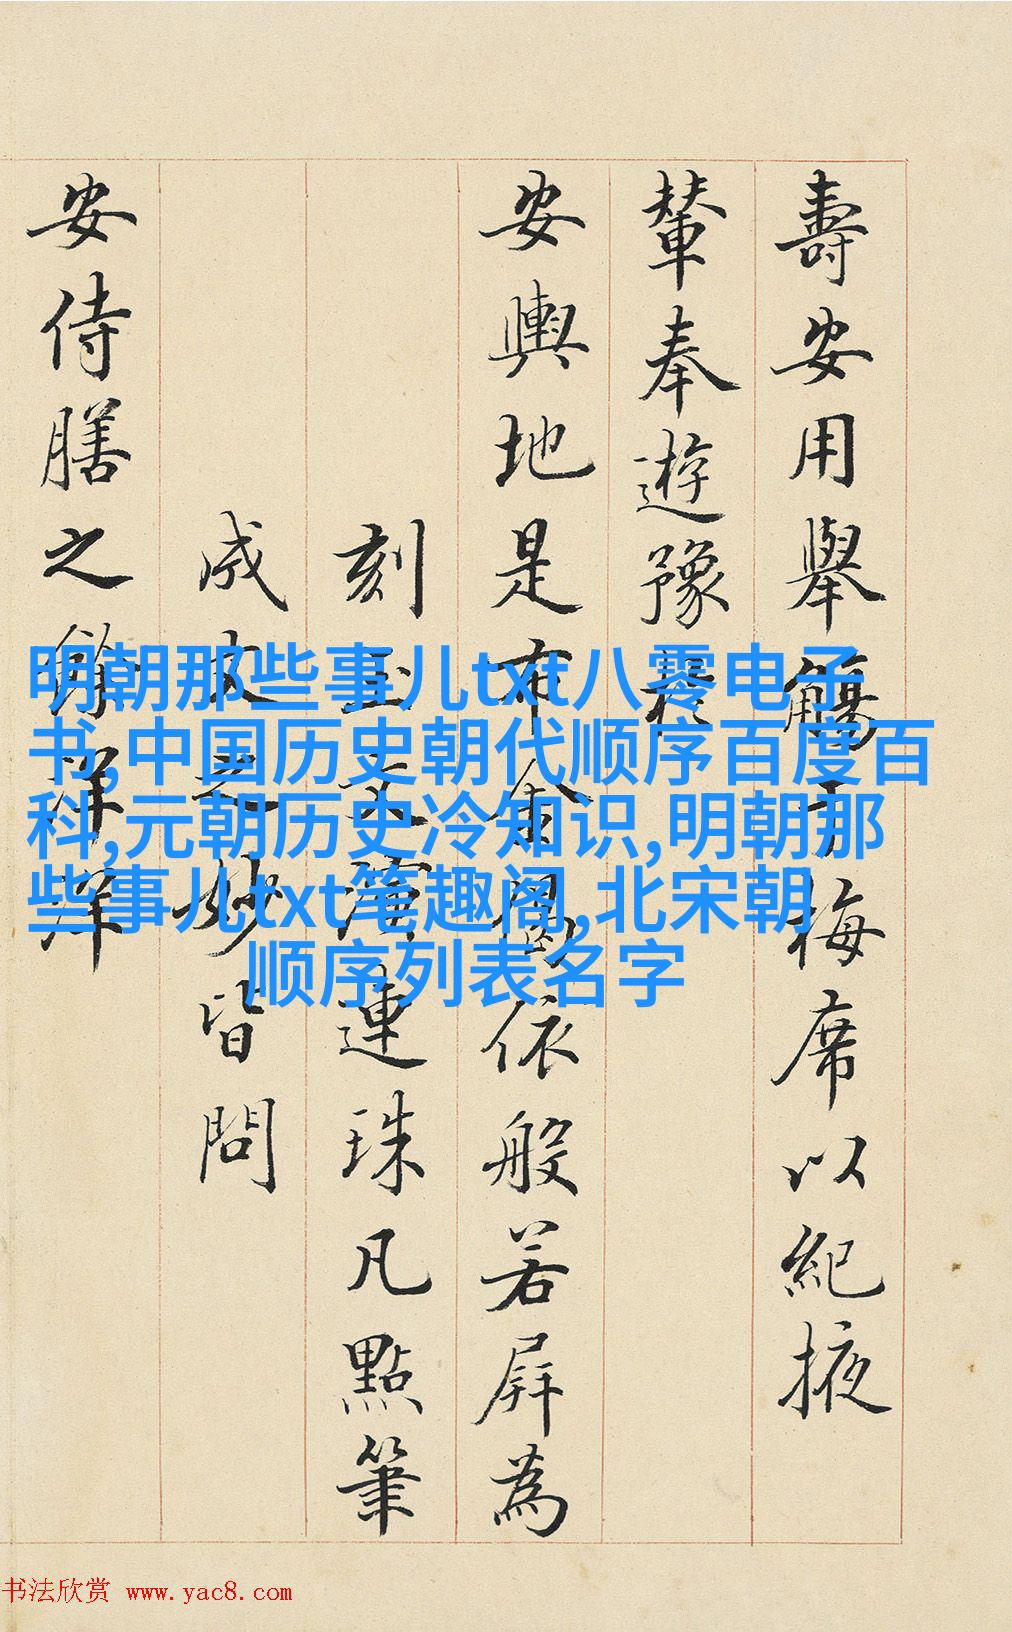 壽安用舉觴于梅席以紀掖
輦奉遊豫
安輿地是布金園依般若屏為
刻玉文演連珠凡點筆
成文之妙皆問
安侍膳之餘渾渾
明朝那些事儿txt八零电子
书,中国历史朝代顺序百度百
科,元朝历史冷知识,明朝那
些事儿txt笔趣阁,北宋朝
顺序列表名字
书法欣赏 www.yac8.com